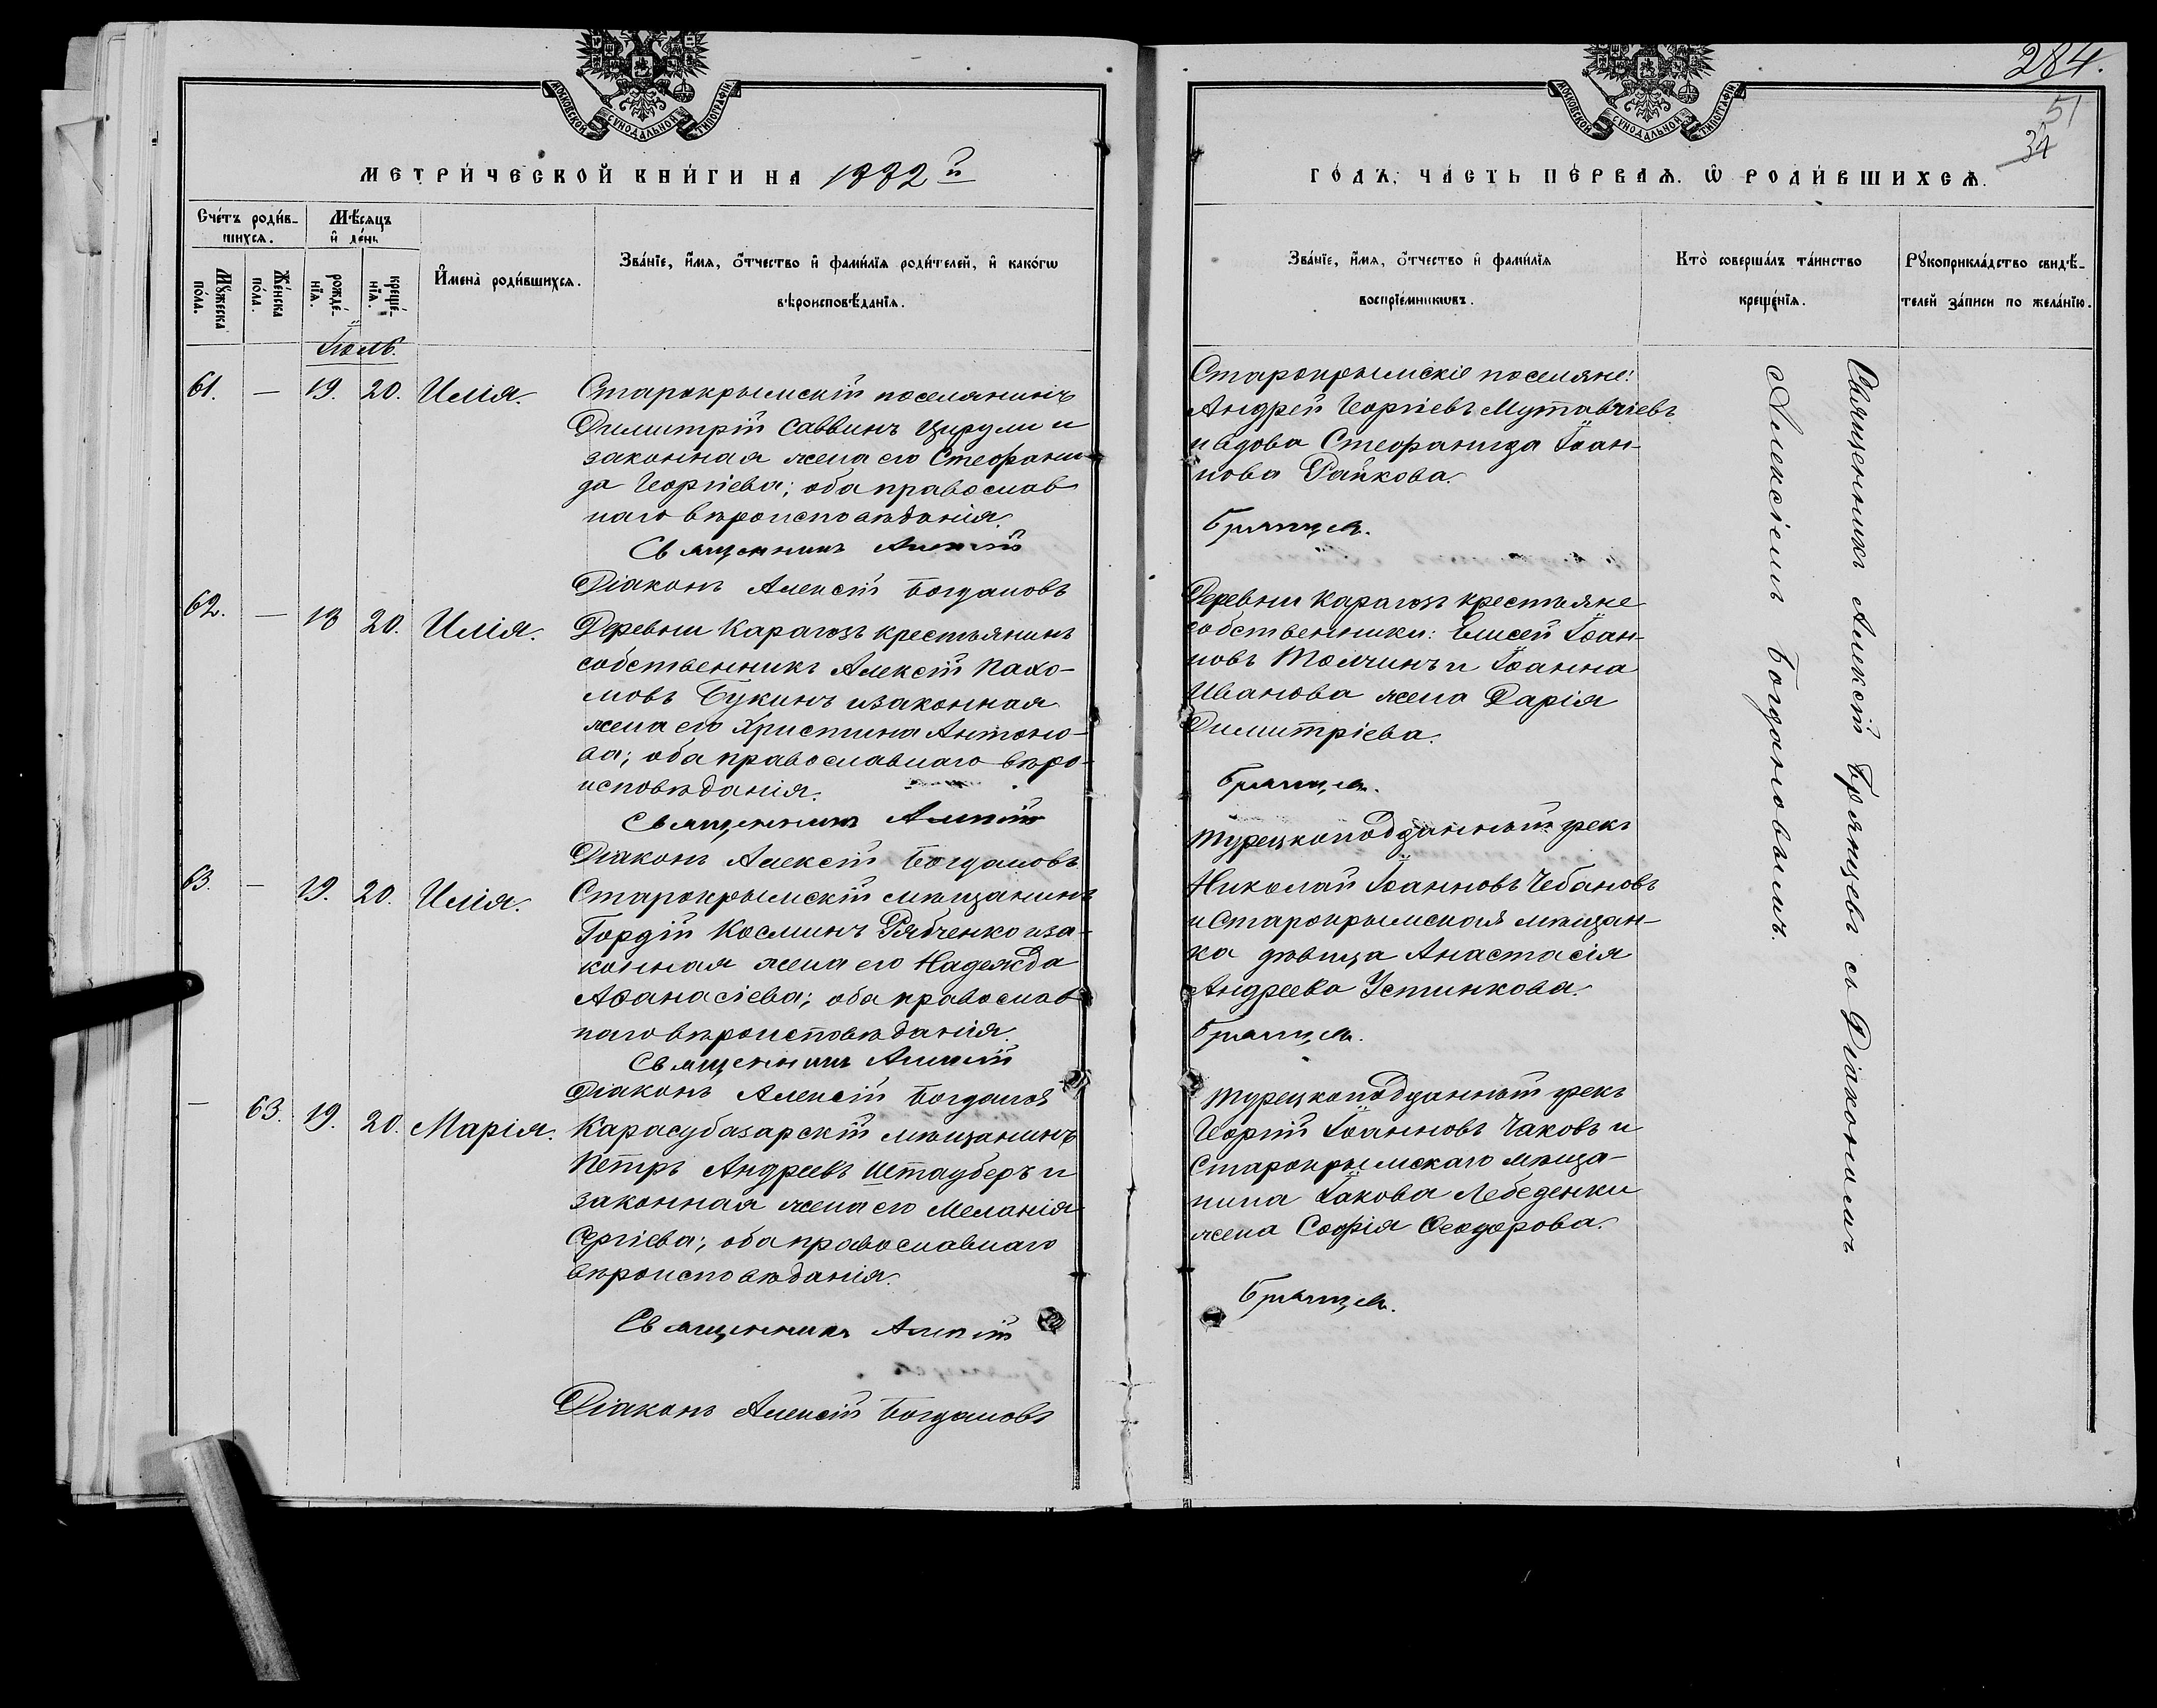 МОСКОВСКОЙ СѴНОДАЛЬНОЙ ТИПОГРАФІИ
МЕТРИ́ЧЕСКОЙ КНИ́ГИ НА 1882й
Сче́тъ роди́в-
шихсѧ.
Мѣ́сѧцъ
и҆ де́нь
Мꙋ́жеска
по́ла.
Же́нска
по́ла.
рожде́-
нїѧ.
креще́-
нїѧ.
И҆мена̀ роди́вшихсѧ.
Зва́нїе, и҆́мѧ, ѻ҆́тчество и҆ фами́лїѧ роди́телей, и҆ како́гѡ
вѣроисповѣ́данїѧ.
Іюль.
61. — 19. 20. Илія.
Старокрымскій поселянинъ
Димитрій Саввинъ Цирули и
законная жена его Стефани-
да Георгіева; оба православ
наго вѣроисповѣданія.
Священникъ Алексій
Діаконъ Алексій Богдановъ
62. — 18 20. Илія.
Деревни Карагозъ крестьянинъ
собственникъ Алексій Пахо-
мовъ Букинъ и законная
жена его Христина Антоно-
ва; оба православнаго вѣро-
исповѣданія.
Священникъ Алексій
Діаконъ Алексій Богдановъ
63. — 19. 20. Илія.
Старокрымскій мѣщанинъ
Гордій Косминъ Рябченко и за-
конная жена его Надежда
Аѳанасіева; оба православ
наго вѣроисповѣданія.
Священникъ Алексій
Діаконъ Алексій Богдановъ
— 63. 19. 20. Марія.
Карасубазарскій мѣщанинъ
Петръ Андреевъ Штауберъ и
законная жена его Меланія
Сергіева; оба православнаго
вѣроисповѣданія.
Священникъ Алексій
Діаконъ Алексій Богдановъ
284.
51
34
МОСКОВСКОЙ СѴНОДАЛЬНОЙ ТИПОГРАФІИ
ГО́ДЪ, ЧА́СТЬ ПЕ́РВАѦ. Ѡ҆ РОДИ́ВШИХСѦ.
Зва́нїе, и҆́мѧ, ѻ҆́тчество и҆ фами́лїѧ
воспрїе́мникѡвъ.
Кто̀ соверша́лъ та́инство
креще́нїѧ.
Рꙋкоприкла́дство свидѣ́-
телей за́писи по жела́нїю.
Старокрымскіе поселяне:
Андрей Георгіевъ Мутавчіевъ
и вдова Стефанида Іоан-
нова Райкова.
Брянцевъ.
Деревни Карагозъ крестьяне
собственники: Елисей Іоан-
новъ Толчинъ и Іоанна
Иванова жена Дарія
Димитріева.
Брянцевъ.
Турецкоподданный грекъ
Николай Іоанновъ Чебановъ
и Старокрымская мѣщан-
ка дѣвица Анастасія
Андреева Устинкова.
Брянцевъ.
Турецкоподданный грекъ
Георгій Іоанновъ Чаковъ и
Старокрымскаго мѣща-
нина Іакова Лебеденки
жена Софія Ѳеодорова.
Брянцевъ.
Священникъ Алексій Брянцевъ съ Діакономъ
Алексіемъ Богдановымъ.